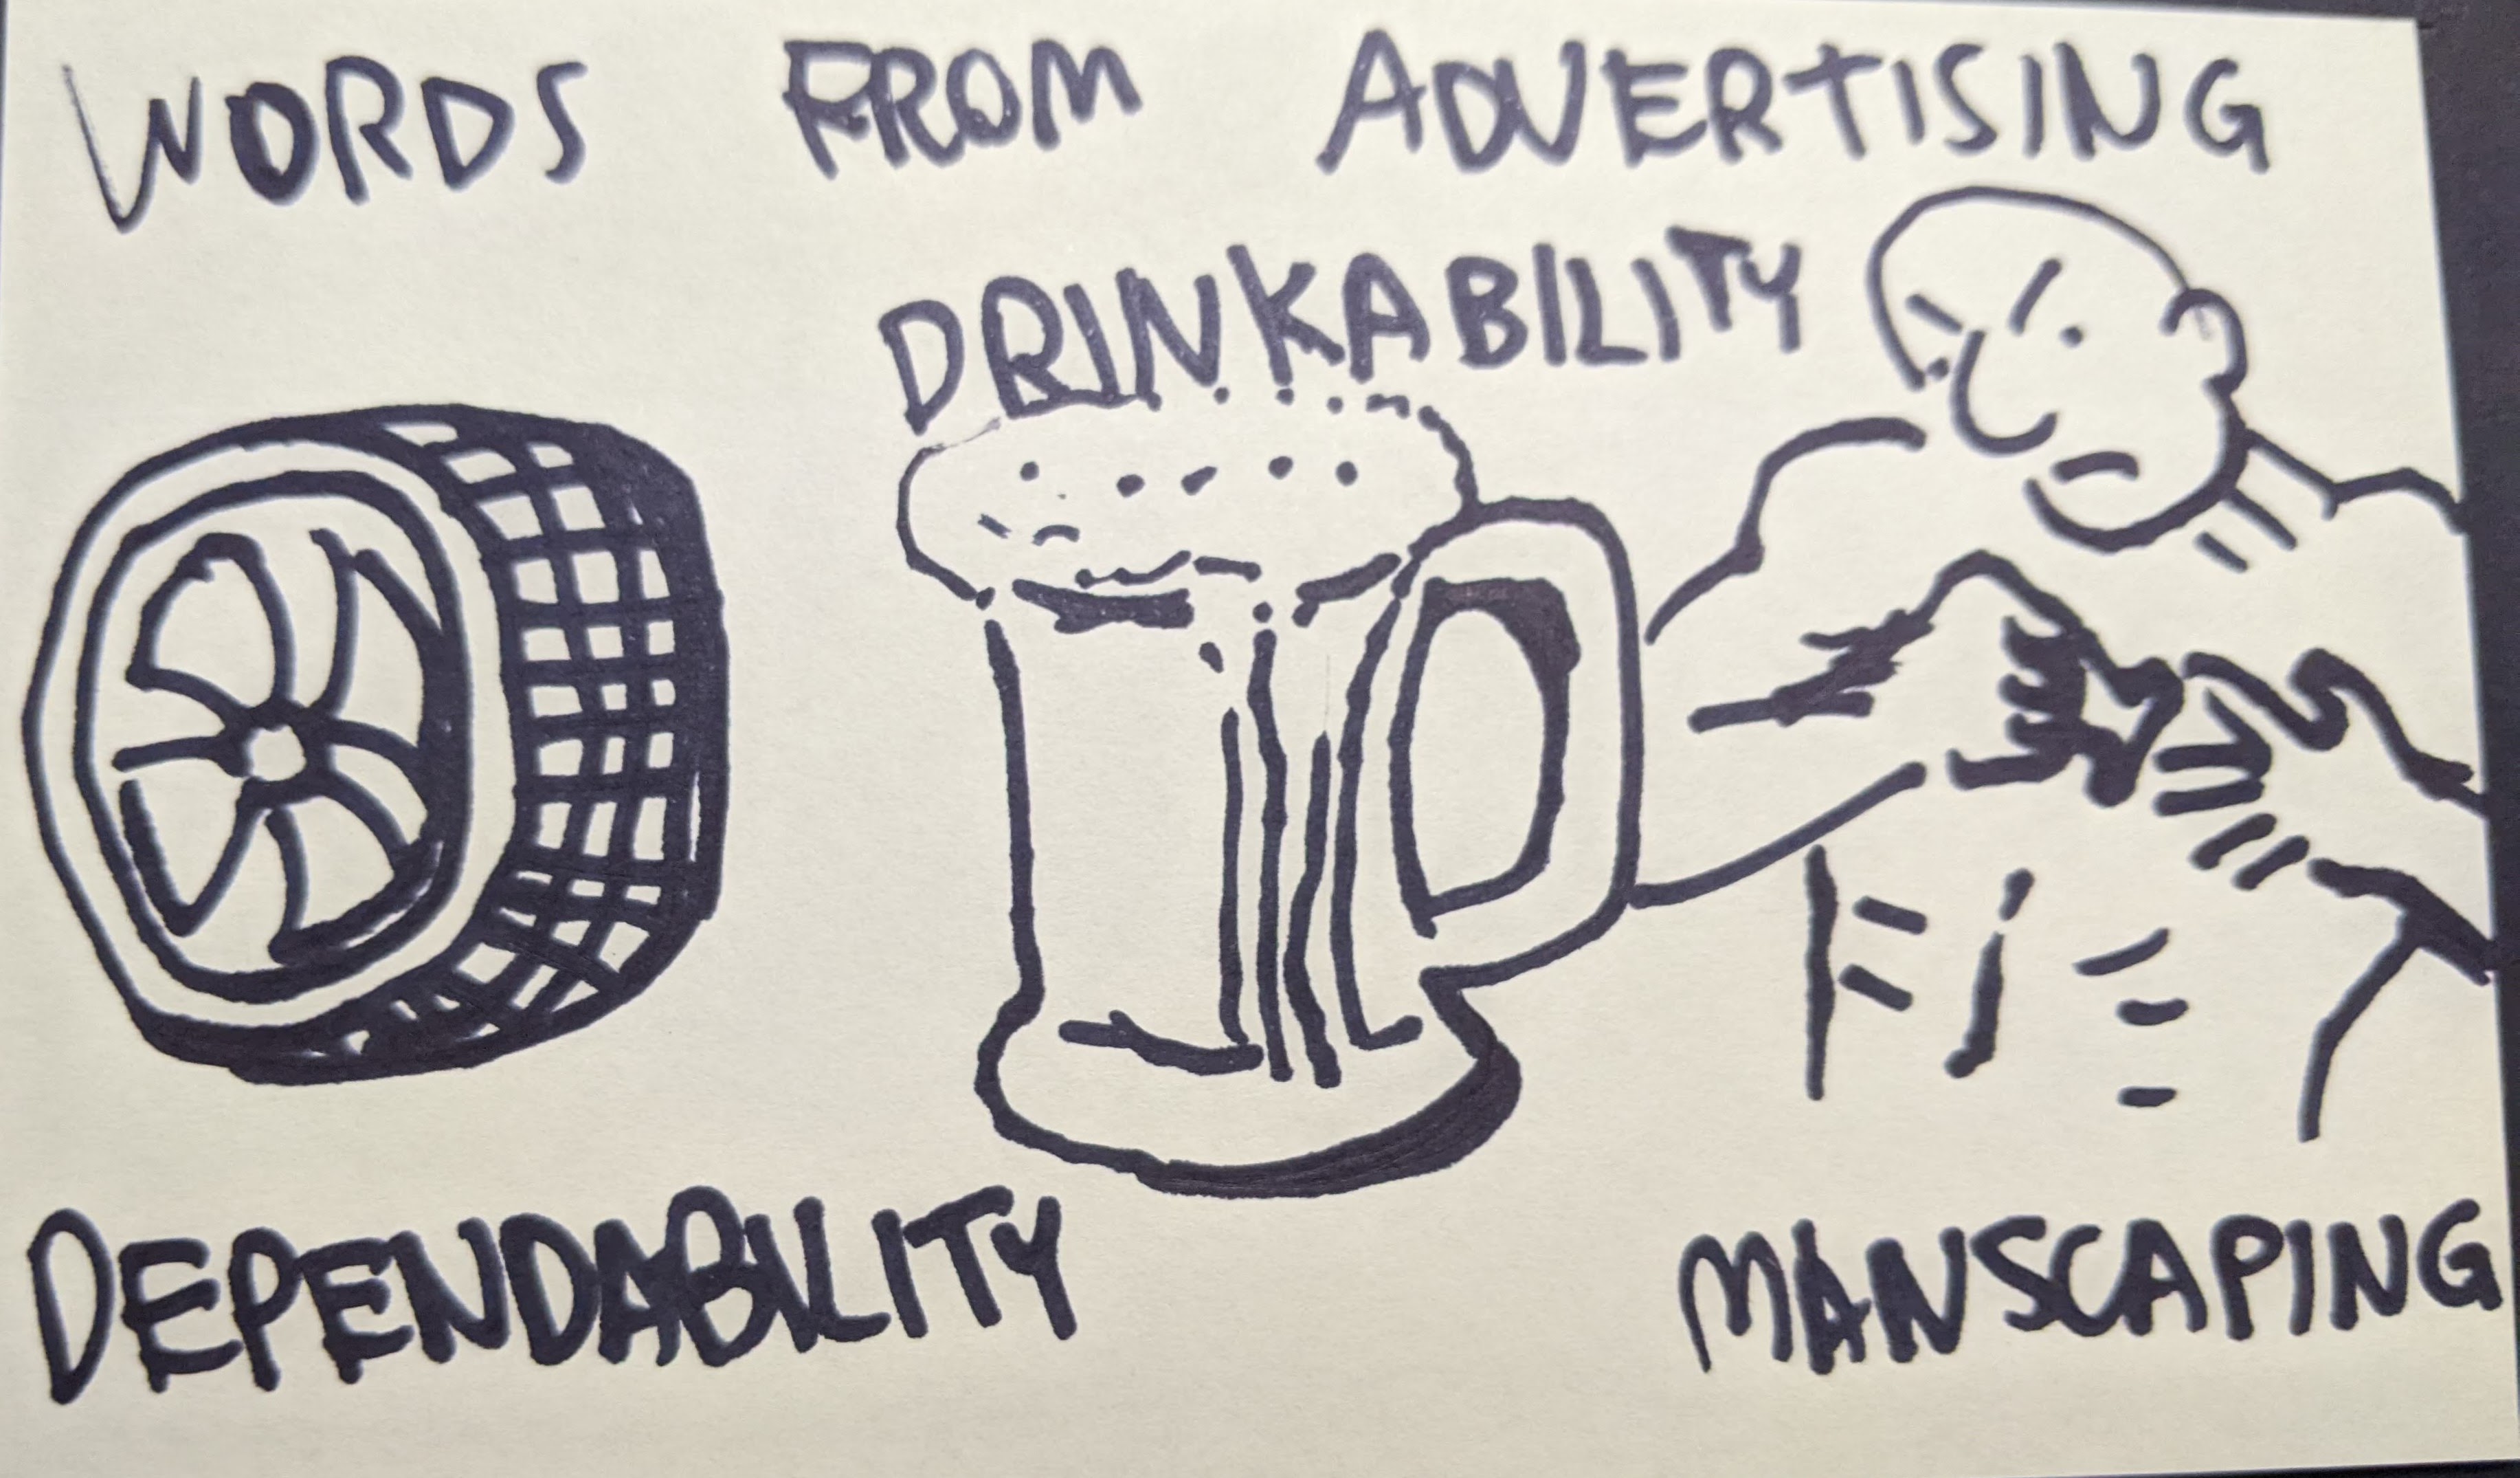 WORDS FROM ADVERTISING
DRINKABILITY
DEPENDABILITY
MANSCAPING